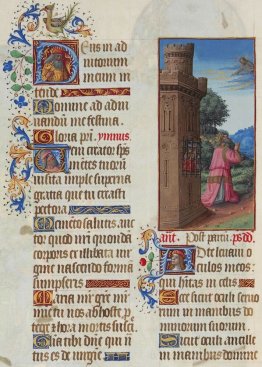 Eus in ad
iutorium
meum in
tende
Domine ad adiu
uandū me festina.
Gloria pri. ymnus.
Ueni creator sps
mētes tuorū
uisita imple superna
gratia que tu creasti
pectora
Memēto salutis auc
tor quod nrī quonda
corporis ex illibata uir
gine nascendo formā
sumpseris
Maria mr grē mr
mīe tu nos ab hoste p
tege et hora mortis suscipe
Gloria tibi dnē qui na
tus es de uirgīe
ant. Post partū. ps. Dd
Ad te leuaui o
culos meos:
qui hītas in celis
Ecce sicut oculi seruo
rum in manibus do
minorum suorum.
Sicut oculi ancille
in manibus domine